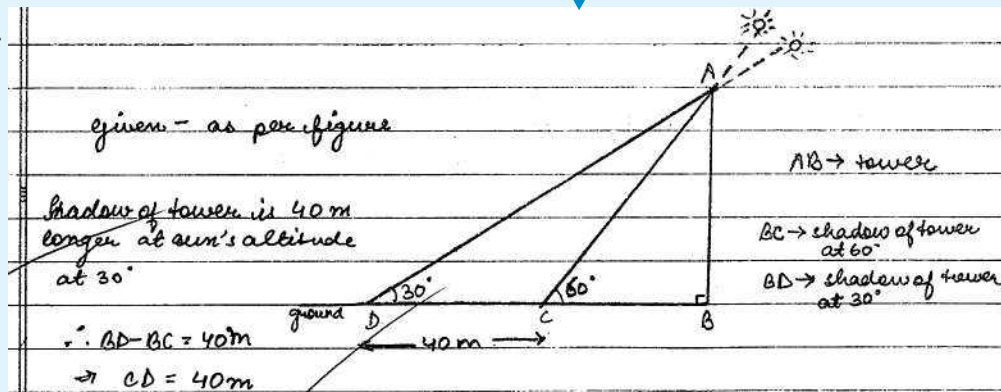 A
given - as per figure
AB → tower
Shadow of tower is 40 m
longer at sun's altitude
at 30°
BC → shadow of tower
at 60°
BD → shadow of tower
at 30°
30°
60°
ground
D
C
B
∴ BD-BC = 40m
← 40m →
⇒ CD = 40m